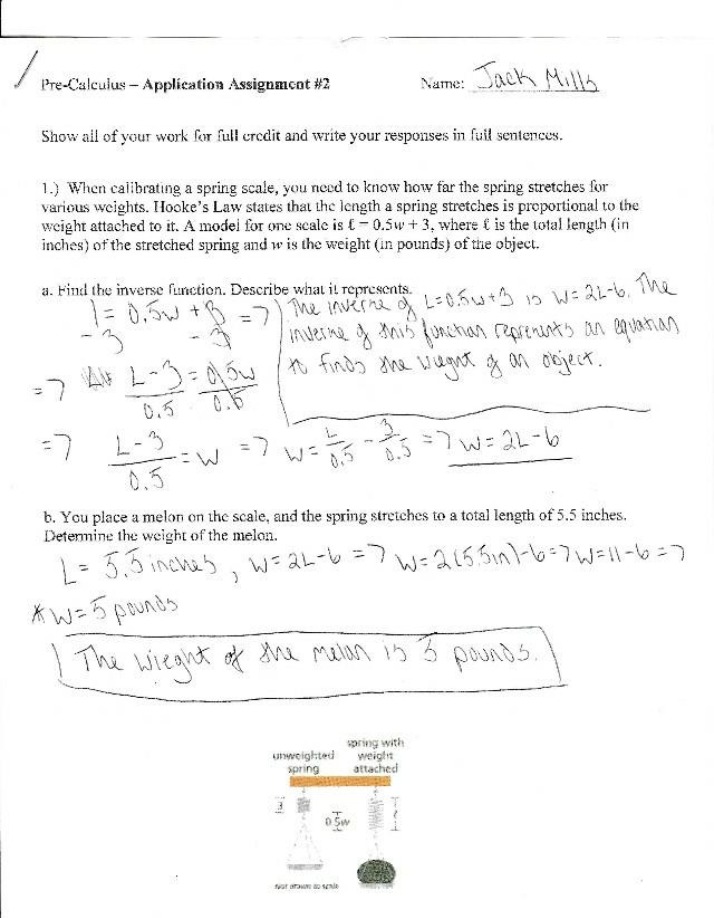 Pre-Calculus – Application Assignment #2 Name: Jack Mills
Show all of your work for full credit and write your responses in full sentences.
1.) When calibrating a spring scale, you need to know how far the spring stretches for
various weights. Hooke's Law states that the length a spring stretches is proportional to the
weight attached to it. A model for one scale is ℓ = 0.5w + 3, where ℓ is the total length (in
inches) of the stretched spring and w is the weight (in pounds) of the object.
a. Find the inverse function. Describe what it represents.
l = 0.5w + 3 =7
-3 -3
=7 L-3 = 0.5w
0.5 0.5
=7 L-3 = w =7 w = L - 3 =7 w = 2L-6
0.5 0.5 0.5
The inverse of L=0.5w+3 is w=2L-6. The
inverse of this function represents an equation
to finds the wieght of an object.
b. You place a melon on the scale, and the spring stretches to a total length of 5.5 inches.
Determine the weight of the melon.
L= 5.5 inches, w=2L-6 =7 w=2(5.5in)-6=7 w=11-6=7
* w=5 pounds
The wieght of the melon is 5 pounds.
spring with
unweighted weight
spring attached
3
0.5w
ℓ
Not drawn to scale